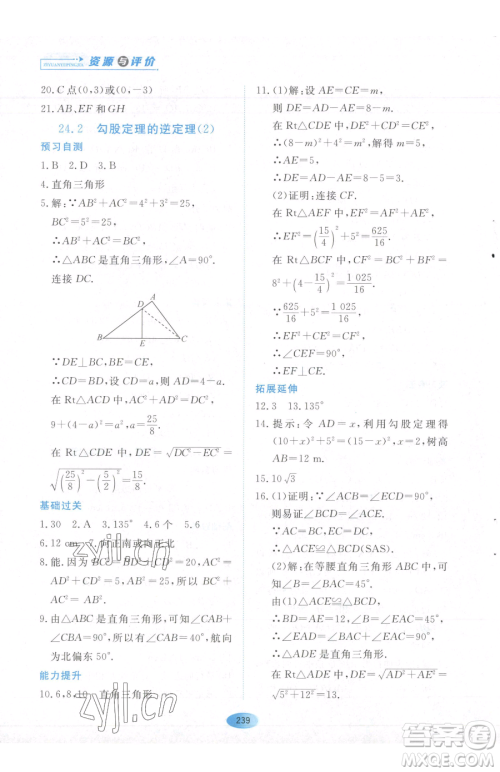 资源与评价
20. C 点(0,3)或(0,-3)
21. AB,EF 和 GH
24.2 勾股定理的逆定理(2)
预习自测
1. B 2. D 3. C
4. 直角三角形
5. 解:∵AB²+AC²=4²+3²=25,
BC²=5²=25,
∴AB²+AC²=BC².
∴△ABC 是直角三角形,∠A=90°.
连接 DC.
A
D
B
E
C
∵DE⊥BC,BE=EC,
∴CD=BD. 设 CD=a,则 BD=a.
在 Rt△ACD 中,
9+(4-a)²=a²,a=25/8.
在 Rt△CDE 中,DE=√(DC²-CE²)=
√((25/8)²-(5/2)²)=15/8.
基础过关
1. 30 2. A 3. 135° 4. 6 个 5. 6
6. 12 cm 7. 向正南或向正北
8. 能. 因为 BC²=BD²+CD²=20,AC²=
AD²+CD²=5,AB²=25,所以 AC²+
BC²=AB².
9. 由△ABC 是直角三角形,可知∠CAB+
∠CBA=90°,所以∠CAB=40°,航向
为北偏东 50°.
能力提升
10. 6,8,10 直角三角形
11. (1)解:设 AE=m,
则 DE=AD-AE=8-m.
在 Rt△ADE 中,
∵DE²+AD²=AE²,
∴(8-m)²+4²=m²,m=5.
∴AE=5.
∴DE=AD-AE=8-5=3.
(2)证明:连接 CF.
在 Rt△AEF 中,
∵AF²+AE²=EF²,
∴EF²=(15/4)²+5²=625/16.
在 Rt△BCF 中,CF²=BC²+BF²=
8²+(4-15/4)²=1 025/16.
∵625/16+5²=1 025/16,
∴EF²+CE²=CF².
∴∠CEF=90°.
∴EF⊥CE.
拓展延伸
12. 3 13. 135°
14. 提示:令 AD=x,利用勾股定理得
(10+x)²+15²=(20-x)²,x=2,树高
12 米.
15. 10√3
16. (1)证明:∵∠ACB=∠ECD=90°,
则易证∠ACE=∠BCD.
∵BC=AC,DC=EC,
∴△ACE≌△BCD(SAS).
(2)解:在等腰直角三角形 ACB 中,
∠B=∠BAC=45°.
由(1)△ACE≌△BCD,
∴BD=AE=12,∠EAC=∠B=45°.
∴∠EAD=∠EAC+∠BAC=90°.
在 Rt△EAD 中,DE=√(AD²+AE²)
=√(5²+12²)=13.
zyjl.cn
239